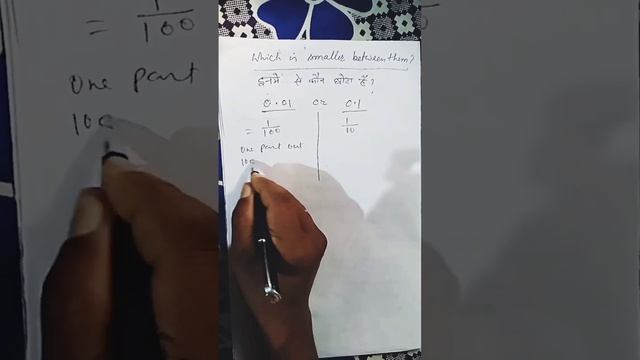 Which is smaller between them?
इनमें से कौन छोटा है?
0.01 or 0.1
= 1/100 1/10
One part out
100